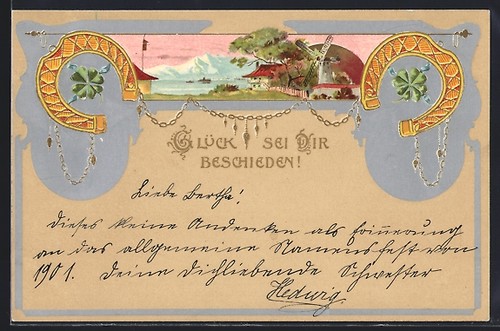 Glück sei Dir
beschieden!
Liebe Bertha!
Dieses kleine Andenken als Erinnerung
an das allgemeine Namensfest von
1901. Deine Dichliebende Schwester
Hedwig